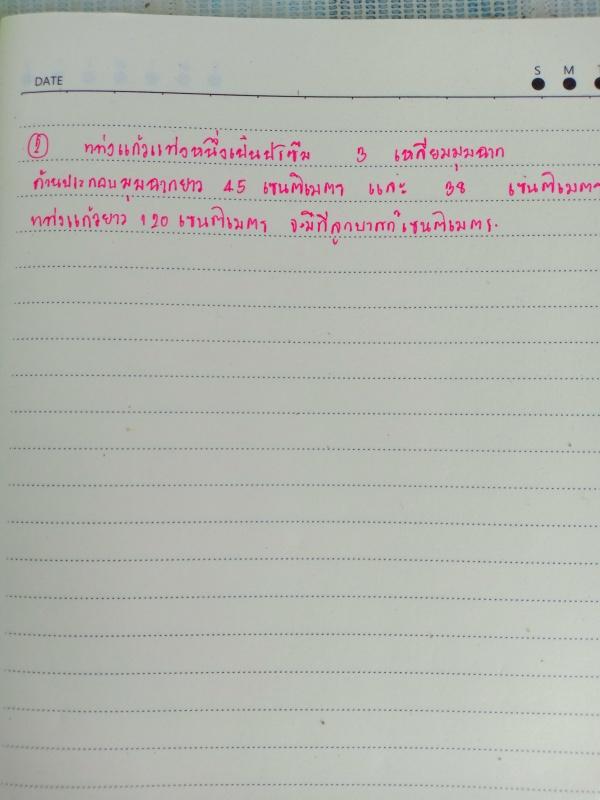 DATE
S M
② แท่งแก้วแท่งหนึ่งเป็นปริซึม 3 เหลี่ยมมุมฉาก
ด้านประกอบมุมฉากยาว 45 เซนติเมตร และ 38 เซนติเมตร
แท่งแก้วยาว 120 เซนติเมตร จะมีกี่ลูกบาศก์เซนติเมตร.